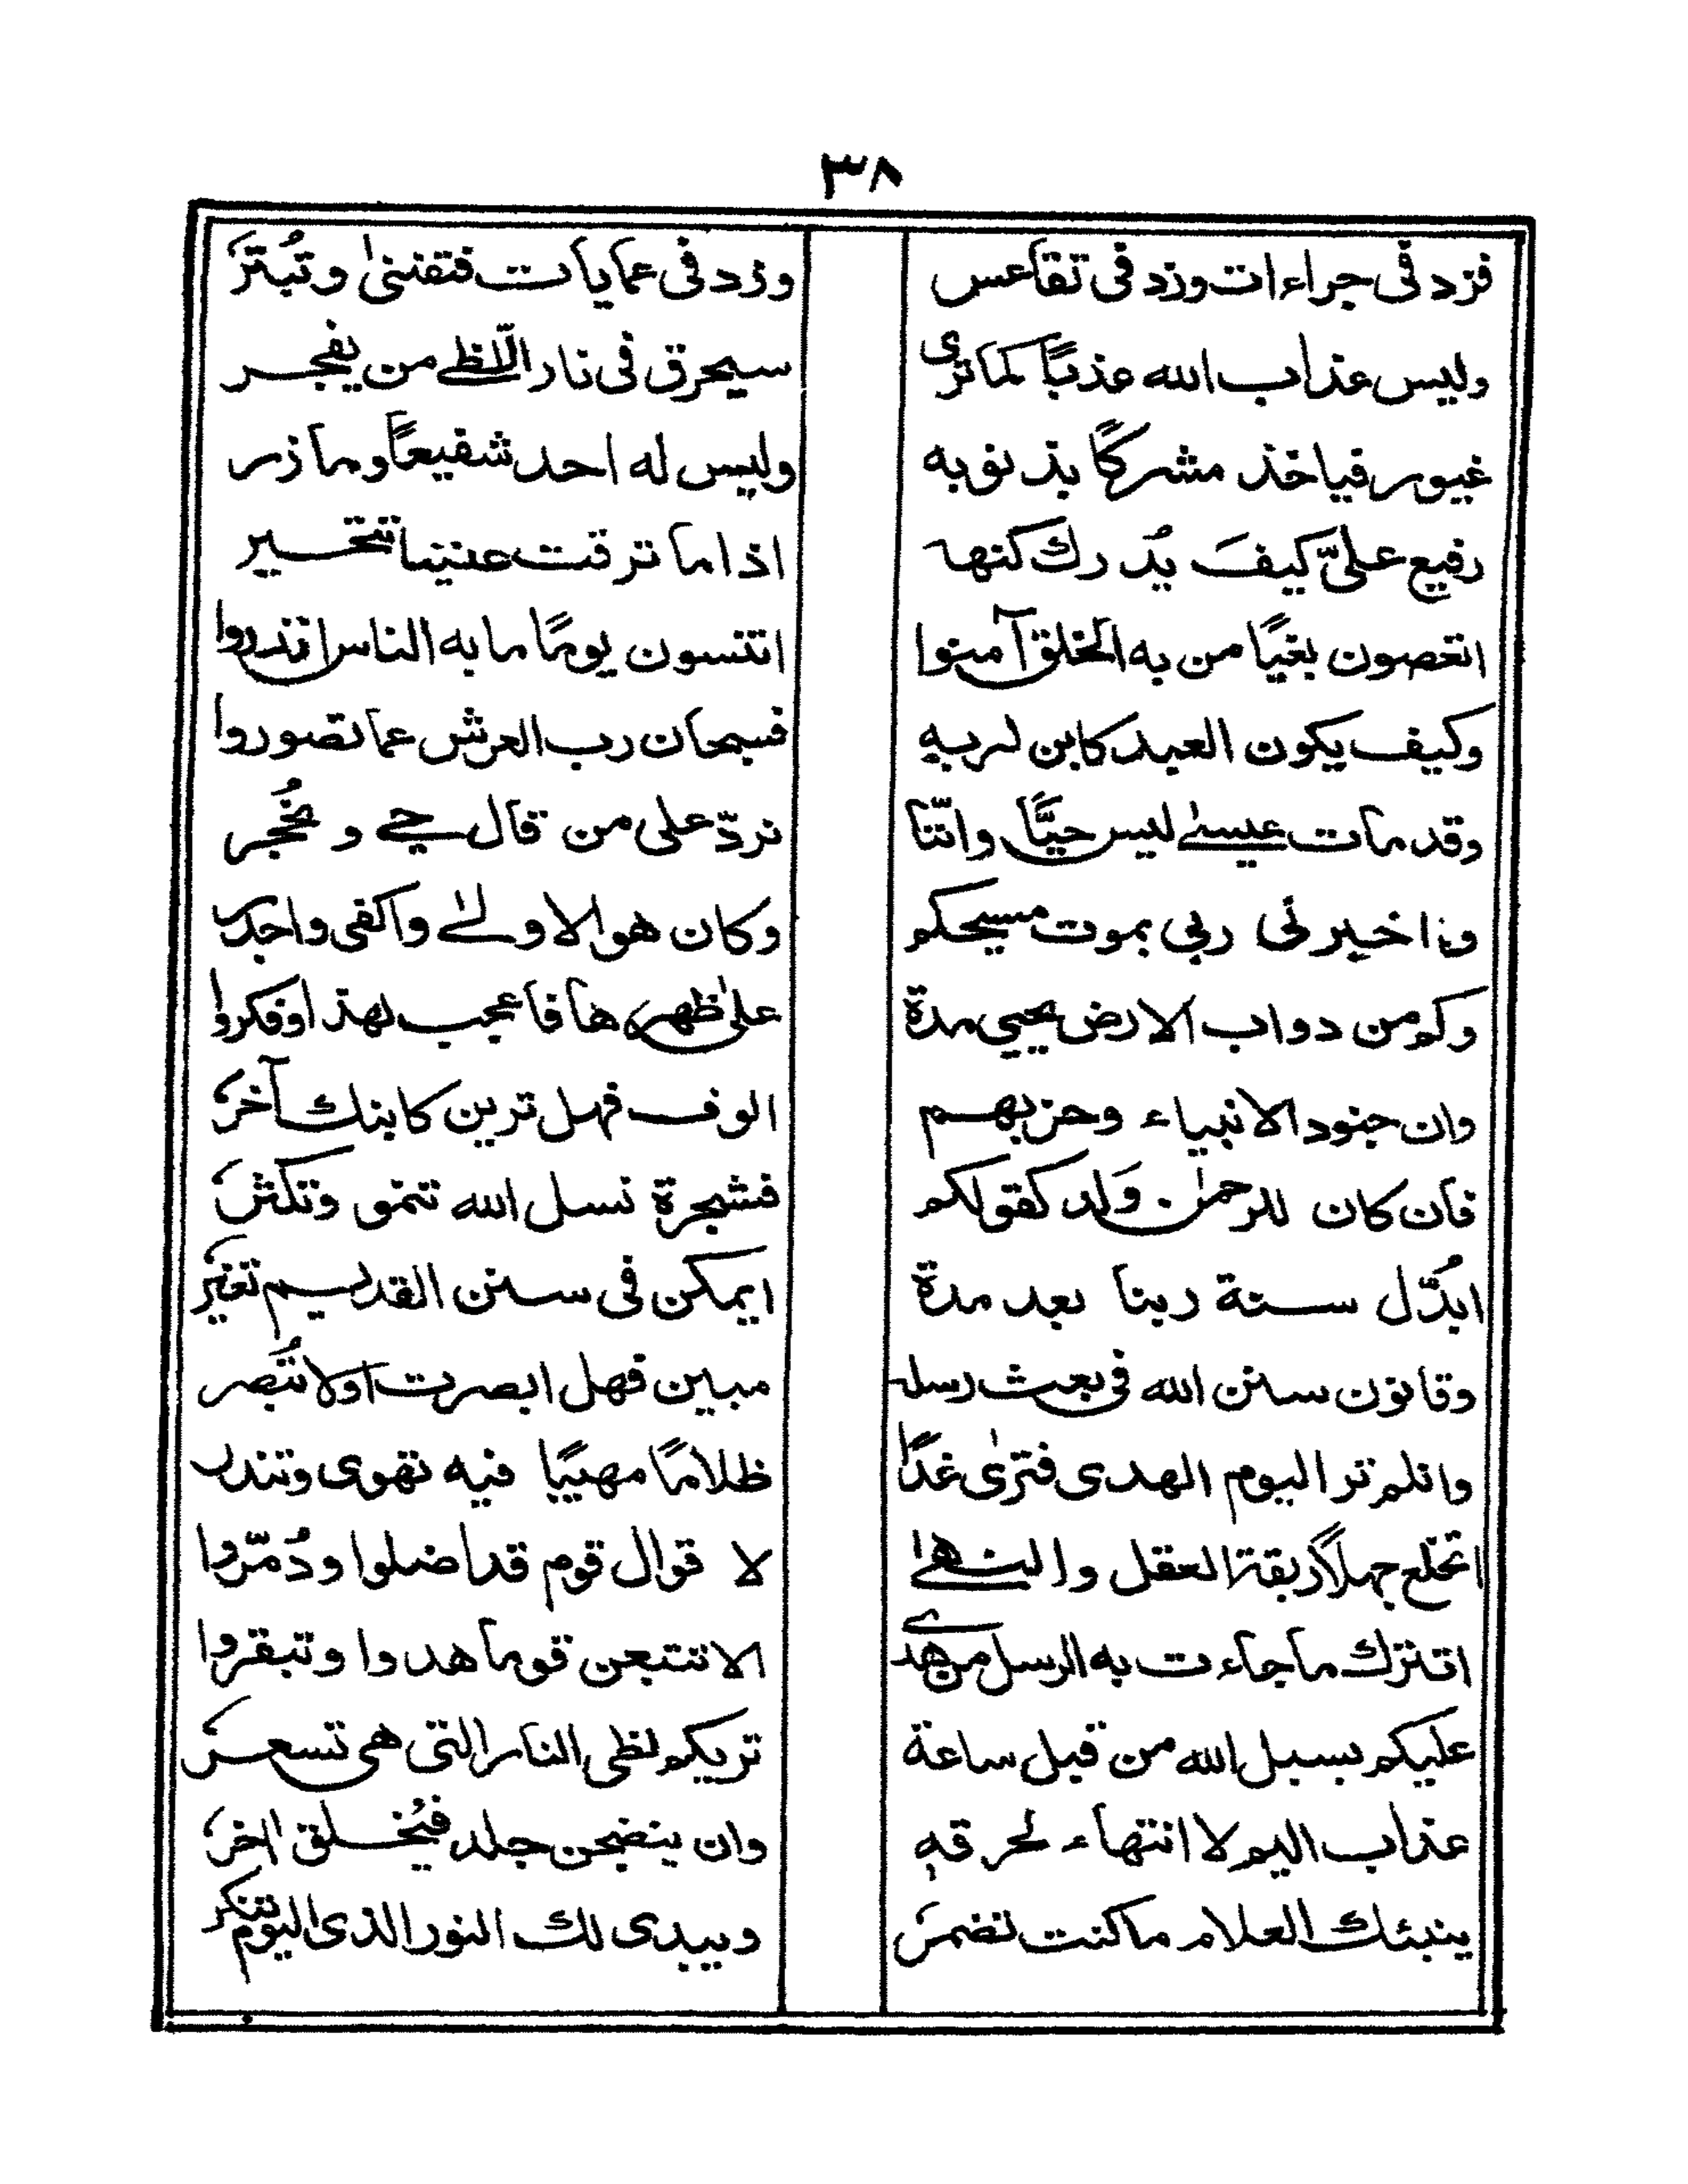 ٣٨
فزد فی جراءات وزد فی تقاعس وزد فی عمایات فتفنیٰ وتُبتَرُ
ولیس عذاب الله عذبًا کماتری سیحرق فی نار اللّظے من یفجر
غیور فیاخذ مشرکًا بذنوبه ولیس له احد شفیعًا وما زر
رفیع علیّ کیفَ یُدرك کنهہ اذا ما ترقت عیننا تتحسیر
اتعصون بغیًا من به الخلق آمنوا اتنسون یومًا ما به الناس انذروا
وکیف یکون العبد کابن لربه فسبحان رب العرش عما تصوروا
وقد مات عیسٰے لیس حیًّا وانّنا نردّ علی من قال حے و نُحُجر
واخبرنی ربی بموت مسیحکم وکان هو الاولےٰ واکفی واجدر
وکم من دواب الارض یحیی مدة علیٰ ظهرها فاعجب لهذا وفکروا
وان جنود الانبیاء وحزبهم الوف فهل ترین کابنك آخرُ
فان کان للرحمٰن وَلد کقولکم فشجرة نسل الله تنمو وتکثرُ
ابُدّل سنة ربنا بعد مدة ایمکن فی سنن القدیم تغیّرُ
وقانون سنن الله فی بعث رسله مبین فهل ابصرت اولا تُبصر
وانلم تر الیوم الهدی فتریٰ غدًا ظلامًا مهیبًا فیه تهوی وتندر
اتخلع جهلًا ربقة العقل والنهےٰ لا قوال قوم قد اضلوا ودُمّروا
اتترك ما جاءت به الرسل من هدی الا تتبعن قوما هدوا وتبقروا
علیکم بسبل الله من قبل ساعة تریکم لظی النار التی هی تسعرُ
عذاب الیم لا انتهاء لحرقه وان ینضجن جلد فیُخلق اخرُ
ینبئك العلام ما کنت تضمرُ ویبدی لك النور الذی الیوم تنکر